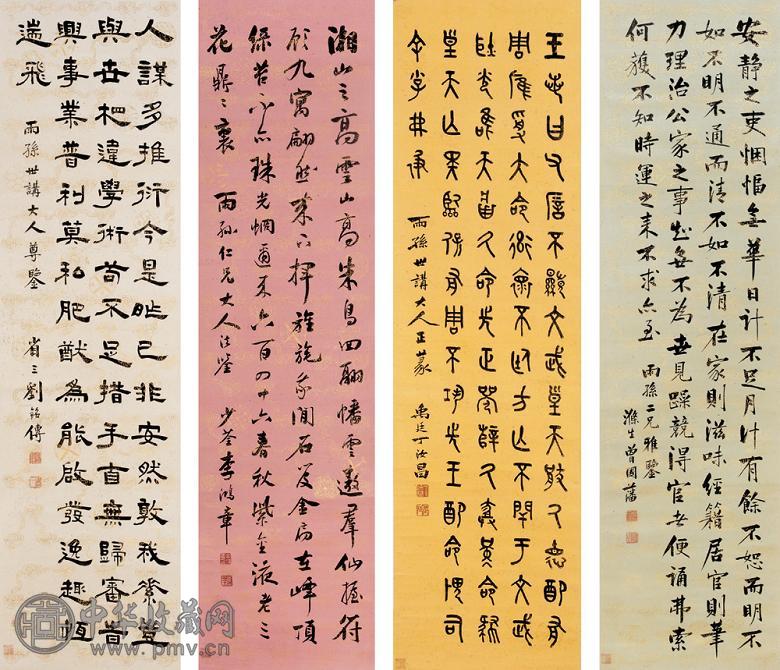 安靜之吏悃愊無華日計不足月計有餘不恕而明不
如不明不通而清不如不清在家則滋味經籍居官則筆
力理治公家之事知無不為世見躁競得官者便謂弗索
何獲不知時運之來不求亦至 雨孫二兄雅鑒
滌生曾國藩
王若曰父不顯文武皇天厥德配我
有周膺受大命率懷不廷方亡不閈于文武
耿光唯天命先正厥命
皇天亡臨保有周不先王配命司
雨孫世講大人正篆 禹廷丁汝昌
湘山之高雲山高朱鳥四翩幡雲遨羣仙握符
顧九寓翩然來下揮旌旄夜間石笈金扃在峰頂
綠苔小點珠光惘邇來六百四十六春秋紫金液老三
花鼎鼎裹 雨孫仁兄大人法鑒 少荃李鴻章
人謀多推衍今是昨已非安然敦我素豈
與世相違學術苟不足措手百無歸審者
興事業普利莫私肥猷為能啟發逸趣恆
遄飛 雨孫世講大人尊鑒 省三劉銘傳
中华收藏网
www.pmv.cn